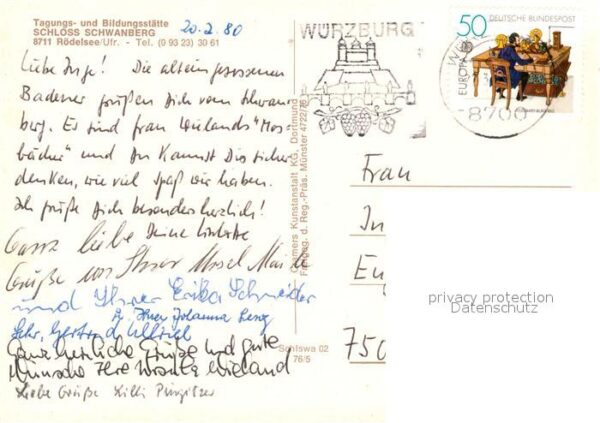 Tagungs- und Bildungsstätte
SCHLOSS SCHWANBERG
8711 Rödelsee/Ufr. - Tel. (0 93 23) 30 61
20.2.80
Liebe Inge! Die alteingesessenen
Badener grüßen Dich vom Schwan-
berg. Es sind Frau Wielands "Mos
bacher" und Du kannst Dir sicher
denken, wie viel Spaß wir haben.
Ich grüße Dich besonders herzlich!
Deine
Ganz liebe
Grüße von Ihrer
und Ihrer Erika Schneider
Ihrer Johanna
Gertrud Ullrich
Ganz herzliche Grüße und gute
Wünsche Ihre Ursula Wieland
Liebe Grüße Lilli
Cramers Kunstanstalt KG, Dortmund
Freigeg. d. Reg.-Präs. Münster 4722/76
Schswa 02
76/5
WÜRZBURG
50 DEUTSCHE BUNDESPOST
EUROPA
8700
Frau
In
750
privacy protection
Datenschutz